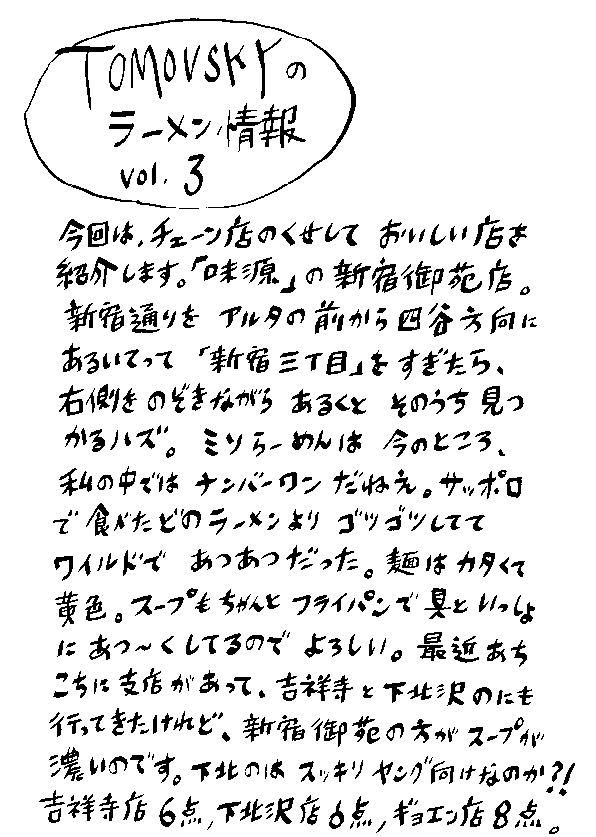 TOMOVSKYの
ラーメン情報
vol. 3
今回は、チェーン店のくせして おいしい店を
紹介します。「味源」の新宿御苑店。
新宿通りを アルタの前から四谷方向に
あるいてって「新宿三丁目」をすぎたら、
右側をのぞきながら あるくと そのうち見つ
かるハズ。ミソらーめんは 今のところ、
私の中では ナンバーワン だねえ。サッポロ
で食べたどのラーメンより ゴツゴツしてて
ワイルドで あつあつだった。麺はカタくて
黄色。スープもちゃんとフライパンで具といっしょ
にあつ〜くしてるので よろしい。最近あち
こちに支店があって、吉祥寺と下北沢のにも
行ってきたけれど、新宿御苑の方がスープが
濃いのです。下北のは スッキリ ヤング向けなのか?!
吉祥寺店6点,下北沢店6点,ギョエン店8点。